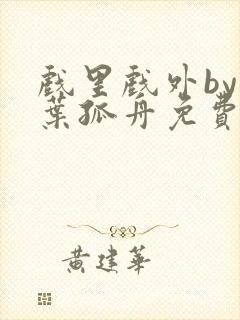 戲里戲外by
葉孤舟免費
黃建華